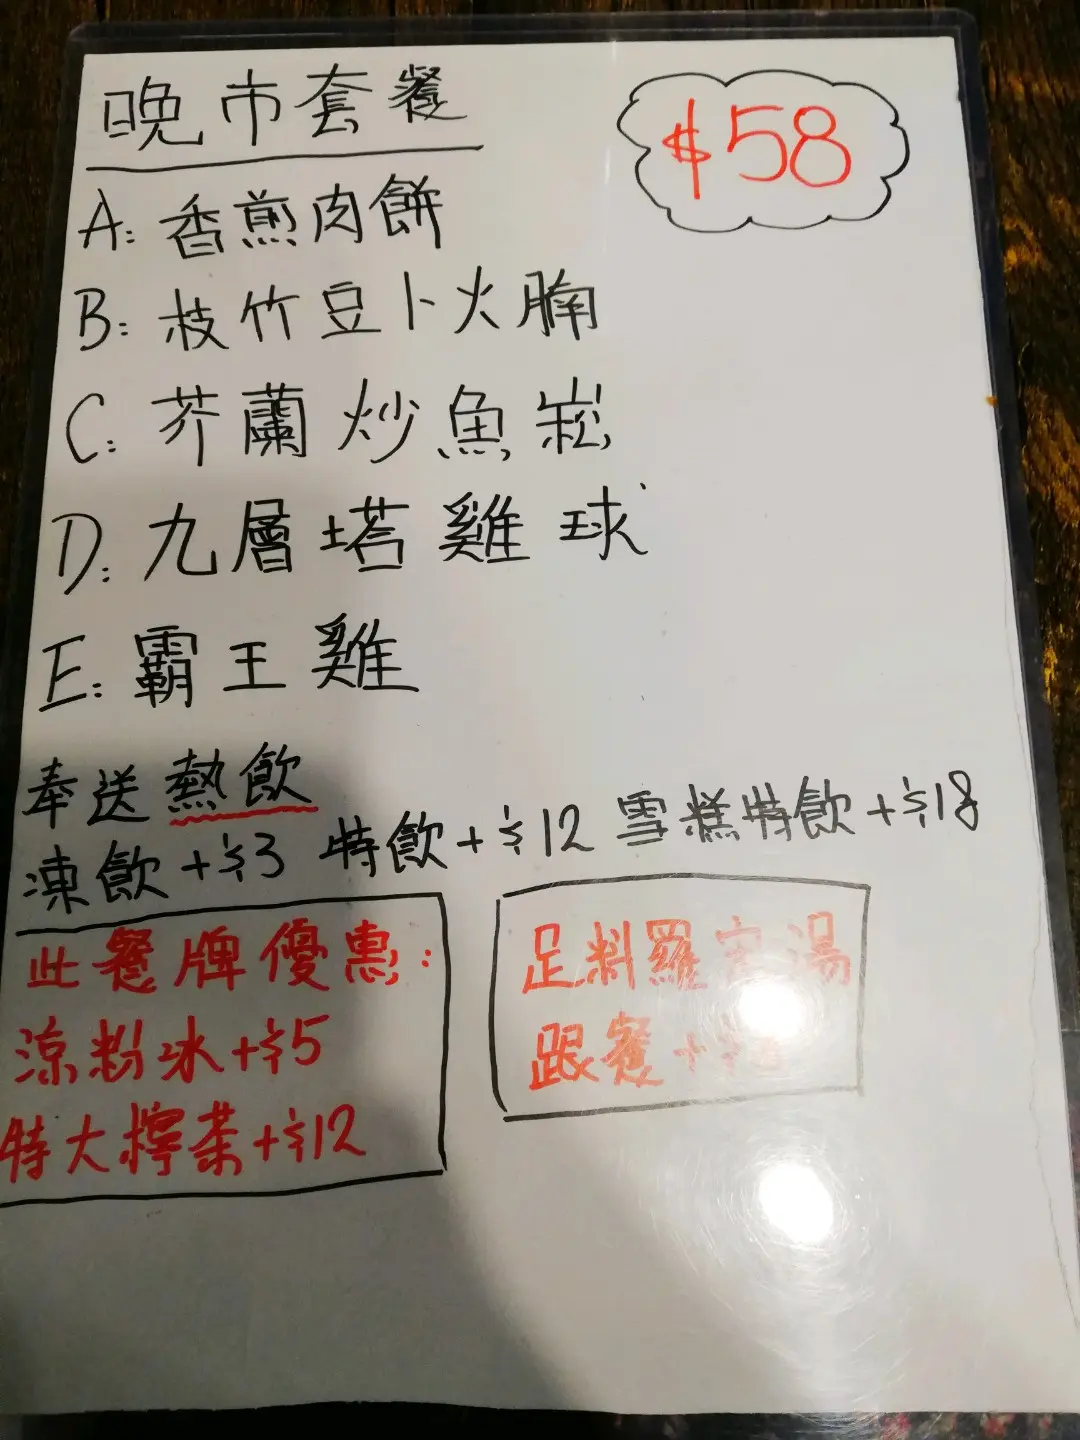 晚市套餐
$58
A: 香煎肉餅
B: 枝竹豆卜火腩
C: 芥蘭炒魚崧
D: 九層塔雞球
E: 霸王雞
奉送熱飲
凍飲+$3 特飲+$12 雪糕特飲+$18
此餐牌優惠:
涼粉冰+$5
特大檸茶+$12
足料羅宋湯
跟餐+$